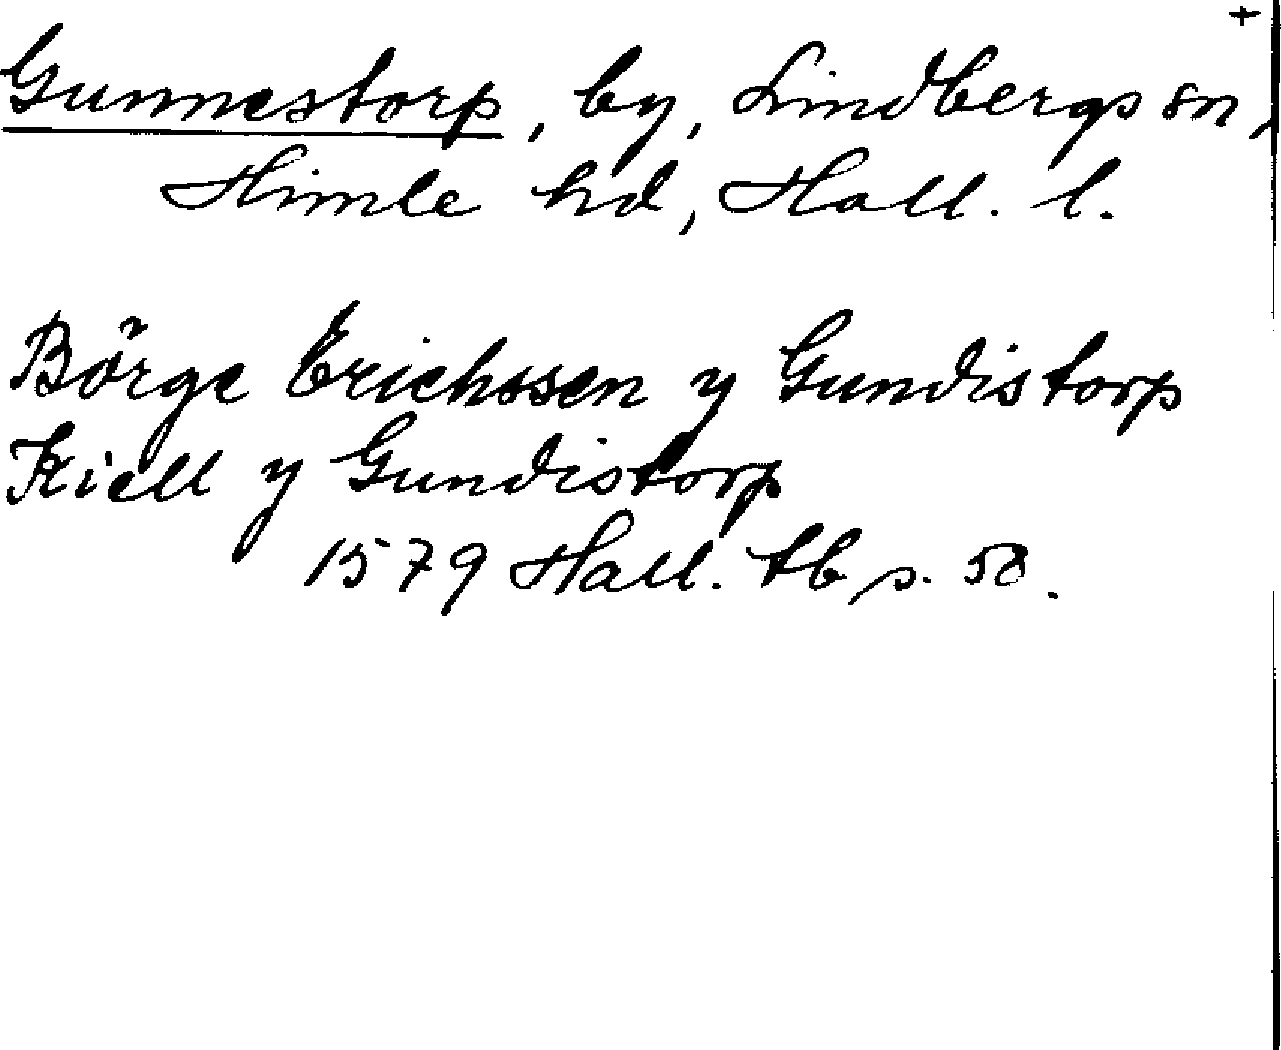 +
Gunnestorp, by, Lindbergs sn,
Himle hd, Hall. l.
Börge Erichssen y Gundistorp
Kiell y Gundistorp
1579 Hall. tb s. 58.